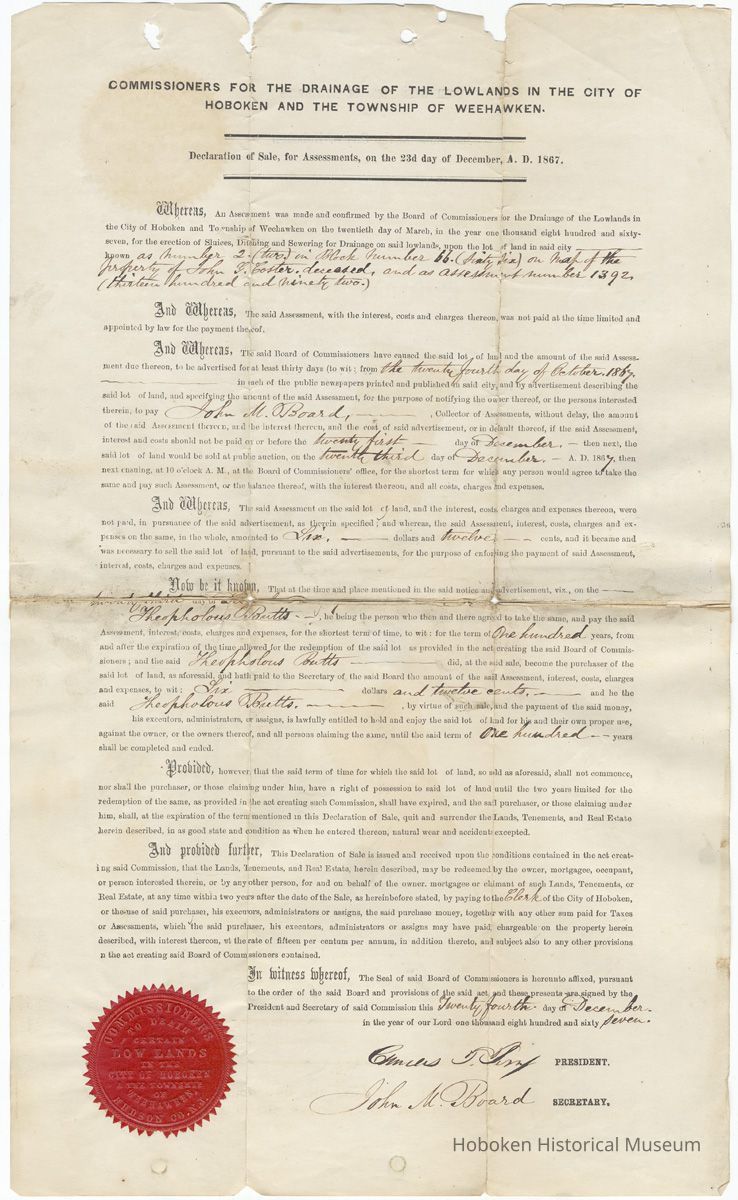 COMMISSIONERS FOR THE DRAINAGE OF THE LOWLANDS IN THE CITY OF
HOBOKEN AND THE TOWNSHIP OF WEEHAWKEN.
Declaration of Sale, for Assessments, on the 23d day of December, A. D. 1867.
Whereas, An Assessment was made and confirmed by the Board of Commissioners for the Drainage of the Lowlands in
the City of Hoboken and Township of Weehawken on the twentieth day of March, in the year one thousand eight hundred and sixty-
seven, for the erection of Sluices, Ditching and Sewering for Drainage on said lowlands, upon the lot of land in said city
known as number 2. (two.) in Block number 66. (sixty six) on map of the
property of John G. Coster, deceased, and as assessment number 1392.
(thirteen hundred and ninety two.)
And Whereas, The said Assessment, with the interest, costs and charges thereon, was not paid at the time limited and
appointed by law for the payment thereof.
And Whereas, The said Board of Commissioners have caused the said lot of land and the amount of the said Assess-
ment due thereon, to be advertised for at least thirty days (to wit: from the twenty fourth day of October. 1867.
in each of the public newspapers printed and published in said city, and by advertisement describing the
said lot of land, and specifying the amount of the said Assessment, for the purpose of notifying the owner thereof, or the persons interested
therein, to pay John M. Board, — , Collector of Assessments, without delay, the amount
of the said Assessment thereon, and the interest thereon, and the cost of said advertisement, or in default thereof, if the said Assessment,
interest and costs should not be paid on or before the twenty first — day of December. — then next, the
said lot of land would be sold at public auction, on the twenth third day of December. — A. D. 1867, then
next ensuing, at 10 o'clock A. M., at the Board of Commissioners' office, for the shortest term for which any person would agree to take the
same and pay such Assessment, or the balance thereof, with the interest thereon, and all costs, charges and expenses.
And Whereas, The said Assessment on the said lot of land, and the interest, costs, charges and expenses thereon, were
not paid, in pursuance of the said advertisement, as therein specified; and whereas, the said Assessment, interest, costs, charges and ex-
penses on the same, in the whole, amounted to Six. — dollars and twelve — cents, and it became and
was necessary to sell the said lot of land, pursuant to the said advertisements, for the purpose of enforcing the payment of said Assessment,
interest, costs, charges and expenses.
Now be it known, That at the time and place mentioned in the said notice and advertisement, viz., on the —
twenty third day of
Theopholous Butts. — , he being the person who then and there agreed to take the same, and pay the said
Assessment, interest, costs, charges and expenses, for the shortest term of time, to wit: for the term of One hundred years, from
and after the expiration of the time allowed for the redemption of the said lot as provided in the act creating the said Board of Commis-
sioners; and the said Theopholous Butts — did, at the said sale, become the purchaser of the
said lot of land, as aforesaid, and hath paid to the Secretary of the said Board the amount of the said Assessment, interest, costs, charges
and expenses, to wit: Six — dollars and twelve cents. — and he the
said Theopholous Butts. — , by virtue of such sale, and the payment of the said money,
his executors, administrators, or assigns, is lawfully entitled to hold and enjoy the said lot of land for his and their own proper use,
against the owner, or the owners thereof, and all persons claiming the same, until the said term of One hundred — years
shall be completed and ended.
Provided, however, that the said term of time for which the said lot of land, so sold as aforesaid, shall not commence,
nor shall the purchaser, or those claiming under him, have a right of possession to said lot of land until the two years limited for the
redemption of the same, as provided in the act creating such Commission, shall have expired, and the said purchaser, or those claiming under
him, shall, at the expiration of the term mentioned in this Declaration of Sale, quit and surrender the Lands, Tenements, and Real Estate
herein described, in as good state and condition as when he entered thereon, natural wear and accidents excepted.
And provided further, This Declaration of Sale is issued and received upon the conditions contained in the act creat-
ing said Commission, that the Lands, Tenements, and Real Estate, herein described, may be redeemed by the owner, mortgagee, occupant,
or person interested therein, or by any other person, for and on behalf of the owner, mortgagee or claimant of such Lands, Tenements, or
Real Estate, at any time within two years after the date of the Sale, as hereinbefore stated, by paying to the Clerk of the City of Hoboken,
or the use of said purchaser, his executors, administrators or assigns, the said purchase money, together with any other sum paid for Taxes
or Assessments, which the said purchaser, his executors, administrators or assigns may have paid, chargeable on the property herein
described, with interest thereon, at the rate of fifteen per centum per annum, in addition thereto, and subject also to any other provisions
n the act creating said Board of Commissioners contained.
In witness whereof, The Seal of said Board of Commissioners is hereunto affixed, pursuant
to the order of the said Board and provisions of the said act, and these presents are signed by the
President and Secretary of said Commission this Twenty fourth day of December.
in the year of our Lord one thousand eight hundred and sixty seven.
PRESIDENT.
John M. Board SECRETARY.
COMMISSIONERS
TO DRAIN
CERTAIN
LOW LANDS
IN THE
CITY OF HOBOKEN
& THE TOWNSHIP
OF
WEEHAWKEN,
HUDSON CO. N.J.
Hoboken Historical Museum